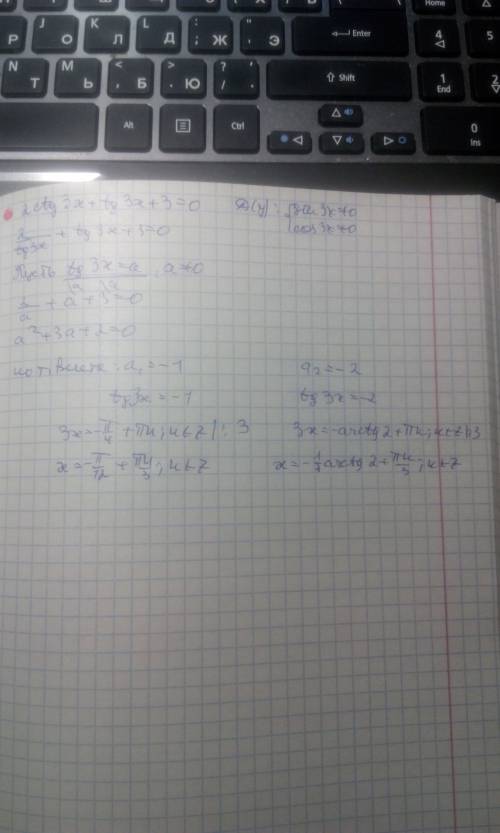 Home
Р J О К Л L Д : ; Ж " ' Э Enter 4 5
N Т М Ь < , Б > . Ю ? / Shift 1 End 2
Alt Ctrl 0 Ins
2ctg 3x + tg 3x + 3 = 0 D(y): { sin 3x ≠ 0
cos 3x ≠ 0
2/tg3x + tg 3x + 3 = 0
Пусть tg 3x = a, a ≠ 0
2/a + a + 3 = 0
a² + 3a + 2 = 0
по т. Виета: a₁ = -1 a₂ = -2
tg3x = -1 tg 3x = -2
3x = -π/4 + πn; n∈Z |: 3 3x = -arctg 2 + πn; n∈Z |:3
x = -π/12 + πn/3; n∈Z x = -1/3 arctg 2 + πn/3; n∈Z